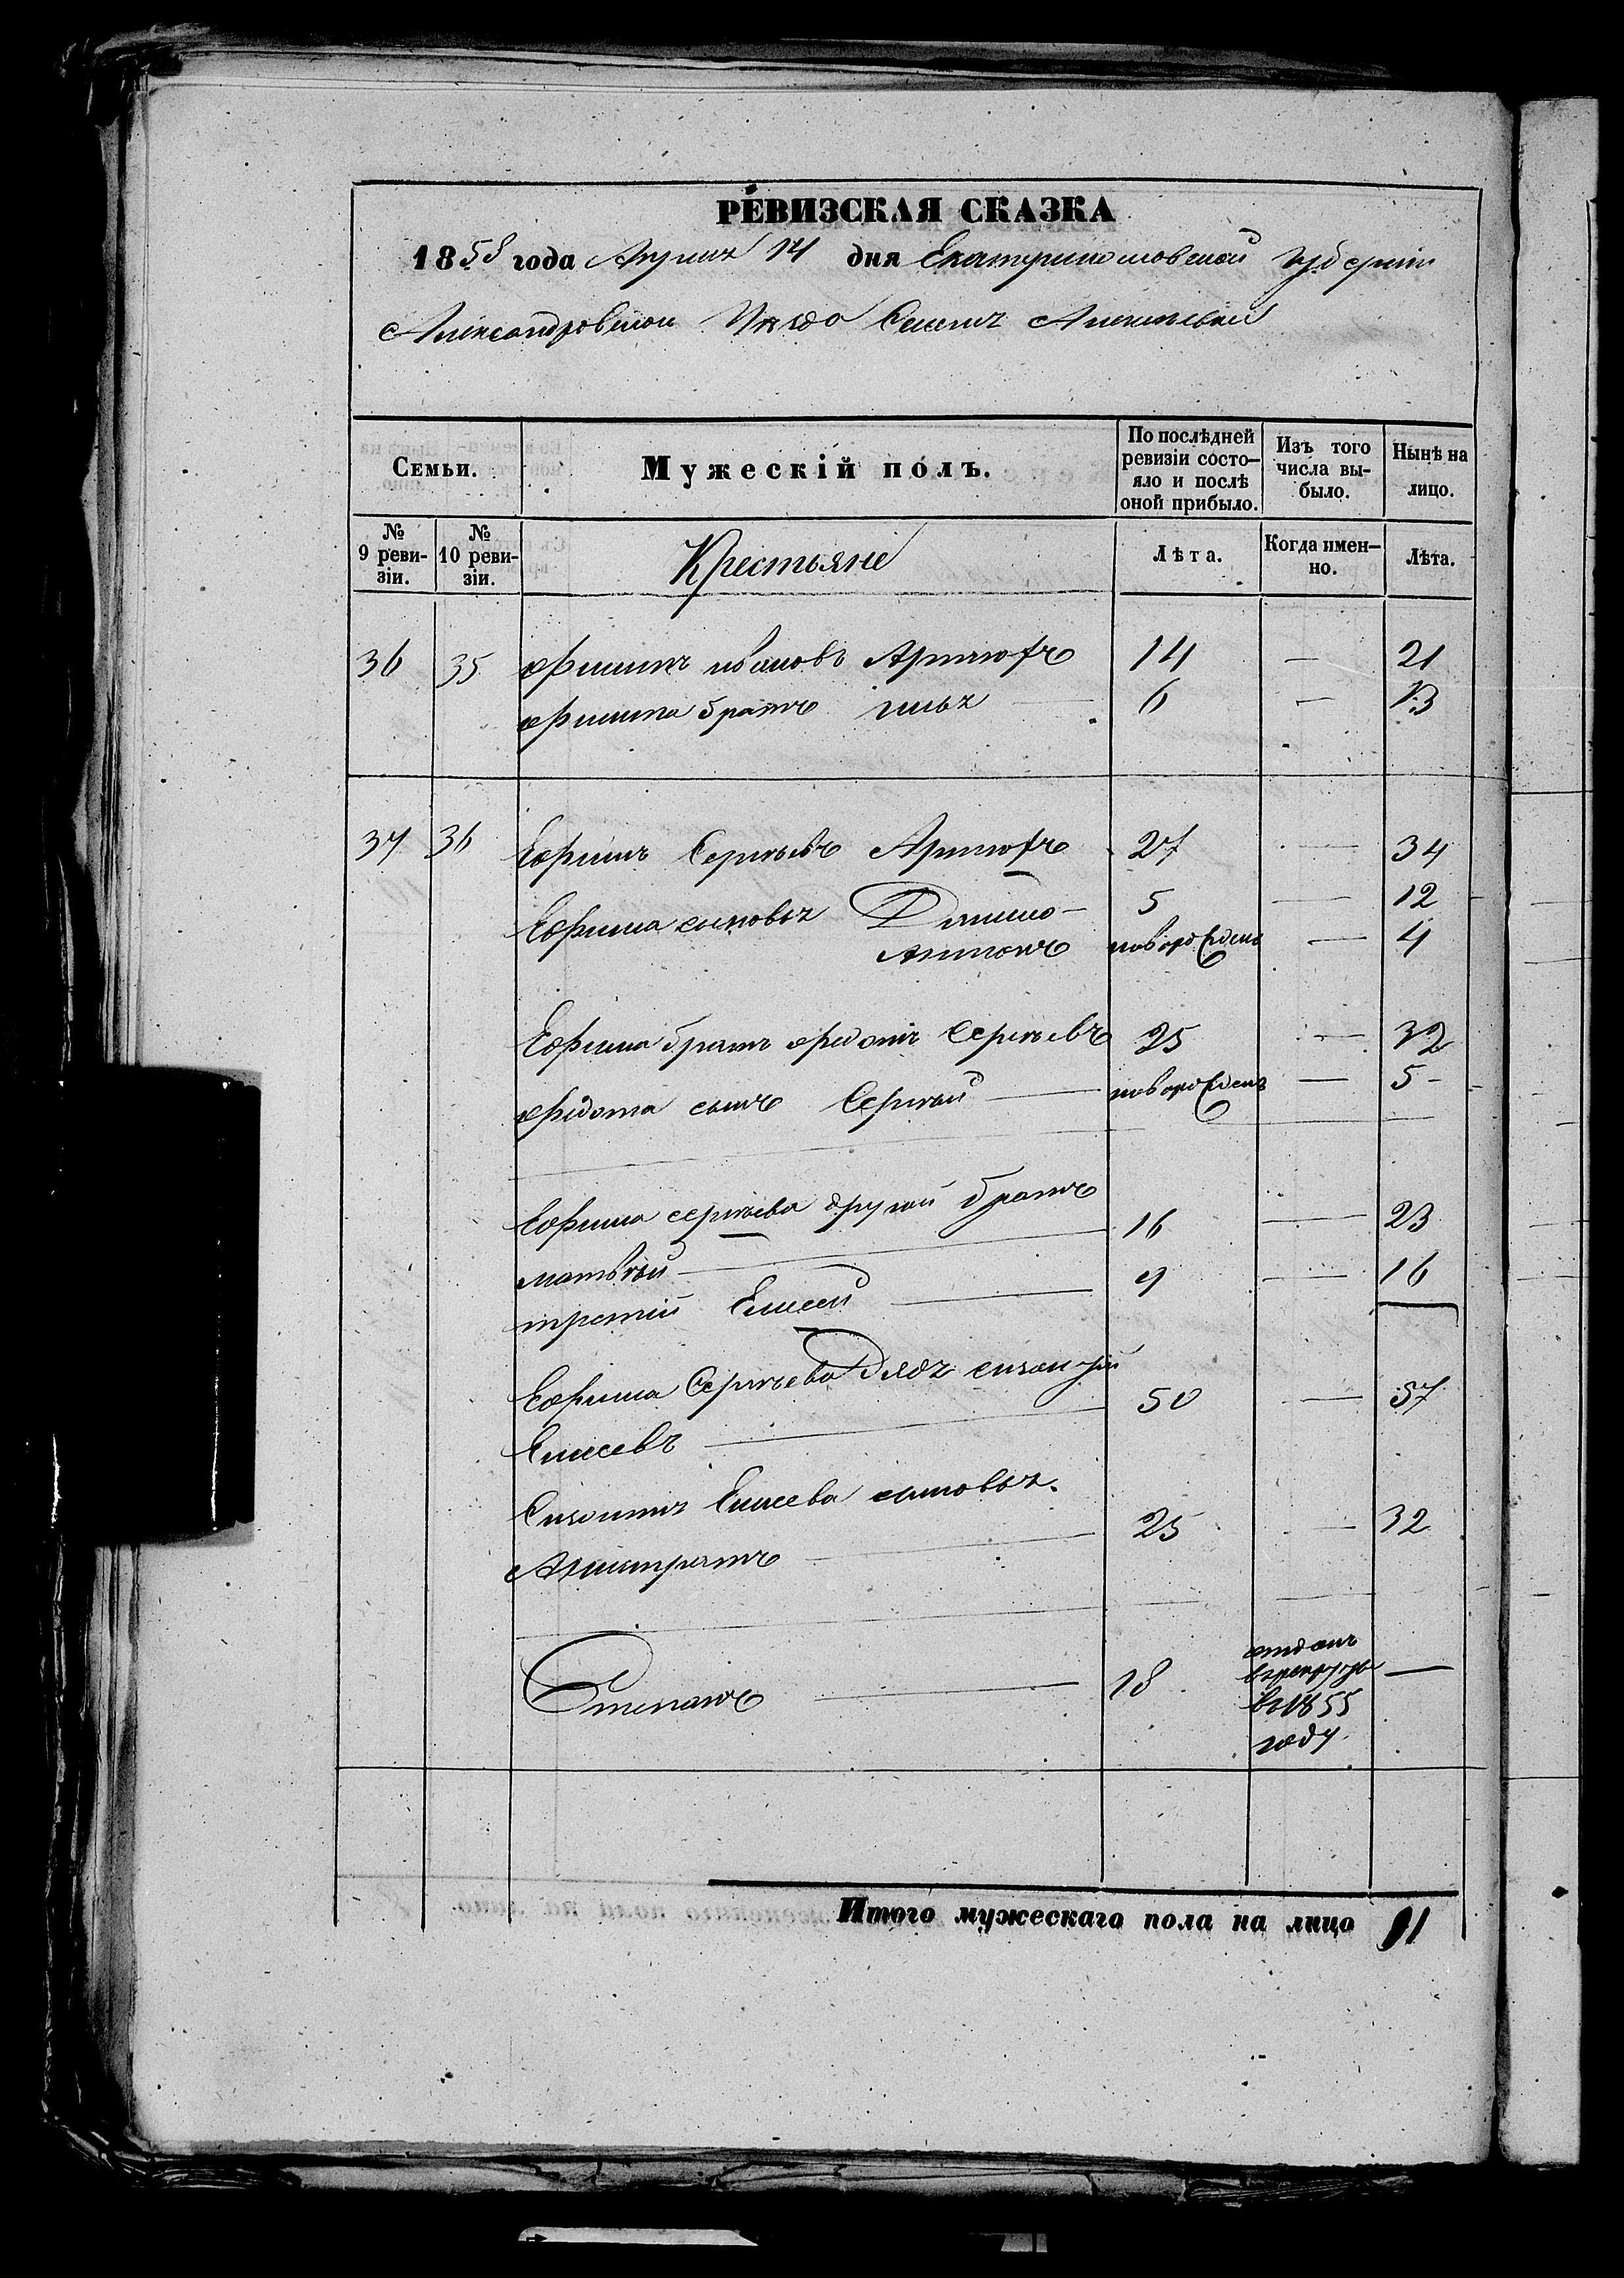 РЕВИЗСКАЯ СКАЗКА
1858 года Апреля 14 дня Екатеринославской губернiи
Александровскаго Уезда Села Алексеевки
Семьи. Мужескiй полъ. По послѣдней ревизiи состо- яло и послѣ оной прибыло. Изъ того числа вы- было. Нынѣ на лицо.
№ 9 реви- зiи. № 10 реви- зiи. Крестьяне Лѣта. Когда имен- но. Лѣта.
36 35 Филипъ ивановъ 14 — 21
Филипа братъ илья 6 — 13
37 36 Ефимъ Сергѣевъ 27 — 34
Ефима сыновья Данило 5 — 12
Антонъ новорожденъ — 4
Ефима братъ Федотъ Сергѣевъ 25 — 32
Федота сынъ Сергѣй новорожденъ — 5
Ефима сергѣева другой братъ
матвѣй 16 — 23
третiй Елисей 9 — 16
Ефима Сергѣева дядя
Елисеевъ 50 — 57
Елисеева сыновья
Калистратъ 25 — 32
Степанъ 18 отданъ в рекруты в 1855 году —
Итого мужескаго пола на лицо 11